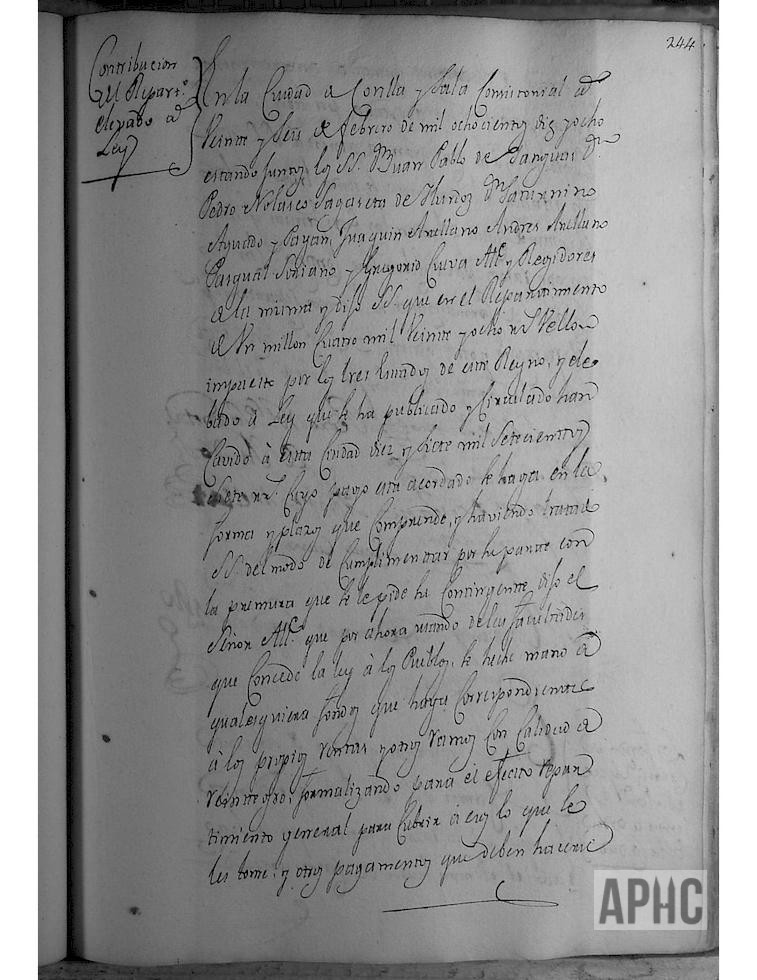 244
Contribucion
del Repart.to
elevado a
Ley
En la Ciudad de Corella y Sala Consistorial a
Veinte y Seis de febrero de mil ochocientos diez y ocho
estando Juntos los SS. Dn Juan Pablo de Sanguas Dn
Pedro Nolasco Sagaseta de Ylurdoz Dn Saturnino
Aguado y Payan, Juaquin Arellano Andres Arellano
Pasqual Soriano y Gregorio Cueva Alc.e y Regidores
de la misma y dijo SS. que en el Repartimiento
de Un millon Cuatro mil Veinte y ocho rs Vellon
impuesto por los tres Estados de este Reyno, y ele
bado a Ley que se ha publicado y Circulado han
Cavido à esta Ciudad diez y siete mil Setecientos
Siete rs. Cuyo pago esta acordado se haga en la
forma y plazos que Comprende, y haviendo tratado
SS. del modo de Cumplimentar por su parte con
la premura que se le pide su Contingente dijo el
Señor Alc.e que por ahora usando de las facultades
que Concede la ley à los Pueblos, se heche mano de
qualesquiera fondos que haya Correspondientes
à los propios rentas y otros ramos Con Calidad de
reintegro, formalizando para el efecto repar
timiento general para Cubrir a ellos lo que se
les tome, y otros pagamentos que deben hacerse
APHC